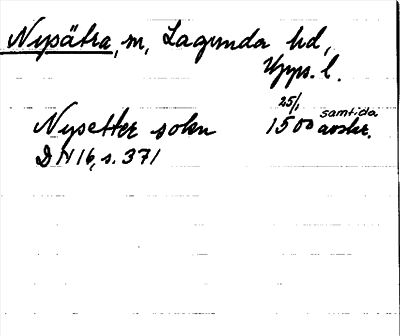 Nysätra, sn, Lagunda hd,
Upps. l.
Nysetter sokn 25/1 1500 samtida avskr.
DN 16, s. 371